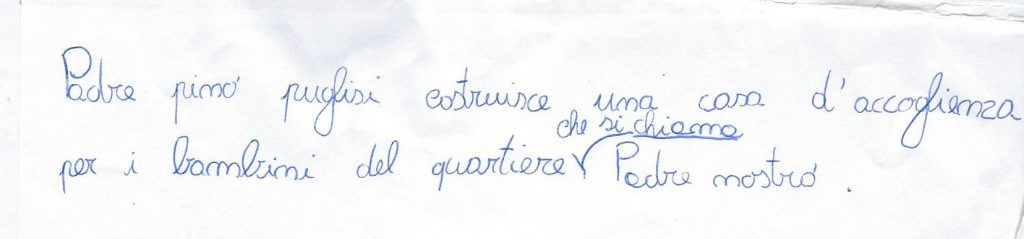 Padre pino puglisi costruisce una casa d'accoglienza
che si chiama
per i bambini del quartiere Padre nostro.